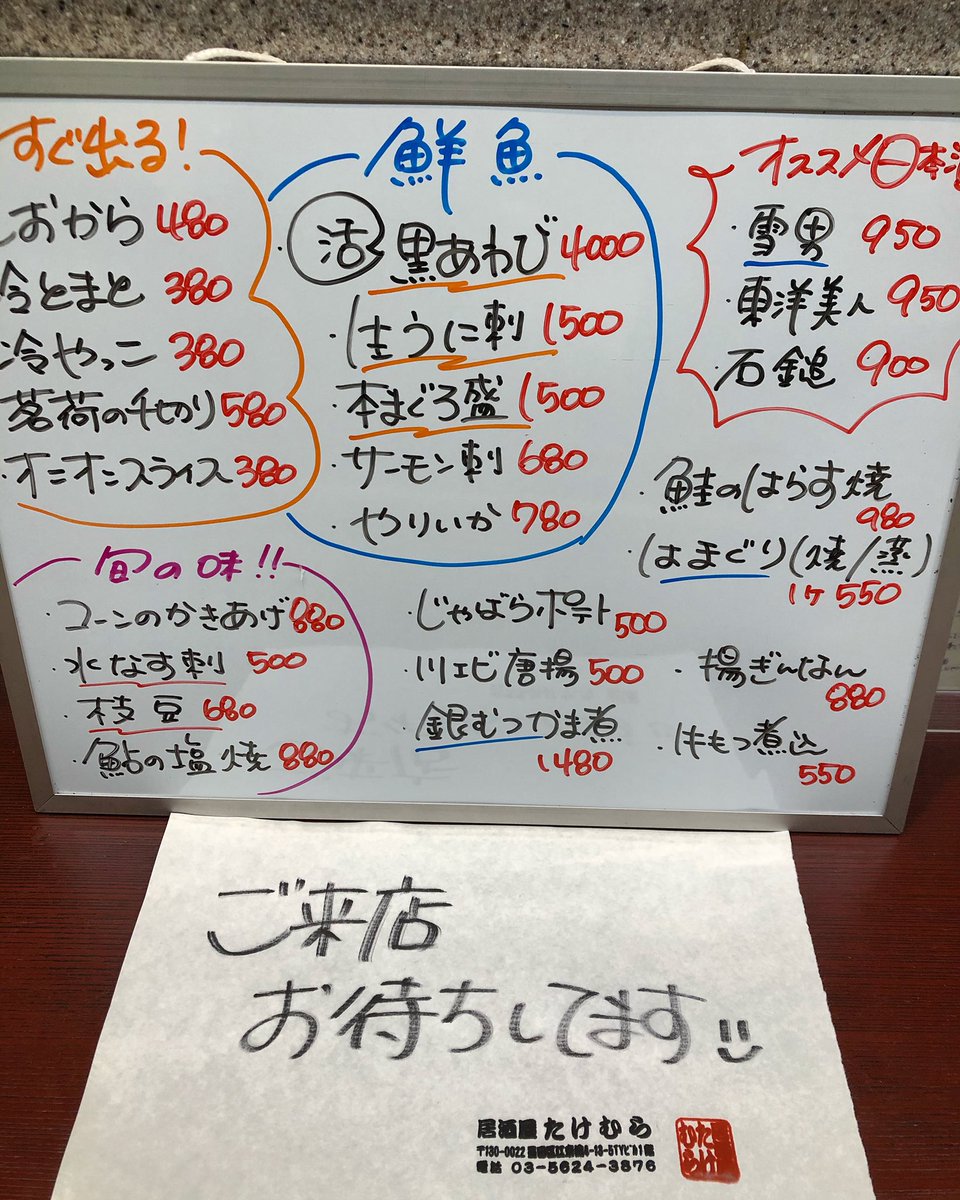 すぐ出る!
しおから 480
冷とまと 380
冷やっこ 380
茗荷の千切り 580
オニオニスライス 380
鮮魚
活 黒あわび 4000
・生うに刺 1500
・本まぐろ盛 1500
・サーモン刺 680
・やりいか 780
オススメ日本酒
・雪男 950
・東洋美人 950
・石鎚 900
・鮭のはらす焼
980
・はまぐり(焼/蒸)
1ケ 550
旬の味!!
・コーンのかきあげ 880
・水なす刺 500
・枝豆 680
・鮎の塩焼 880
・じゃばらポテト 500
・川エビ唐揚 500
・銀むつかま煮
1480
・揚ぎんなん
880
・牛もつ煮込
550
ご来店
お待ちしてます
居酒屋たけむら
〒130-0022 墨田区江東橋4-13-5TYビル1階
電話 03-5624-3876
居酒屋たけむら